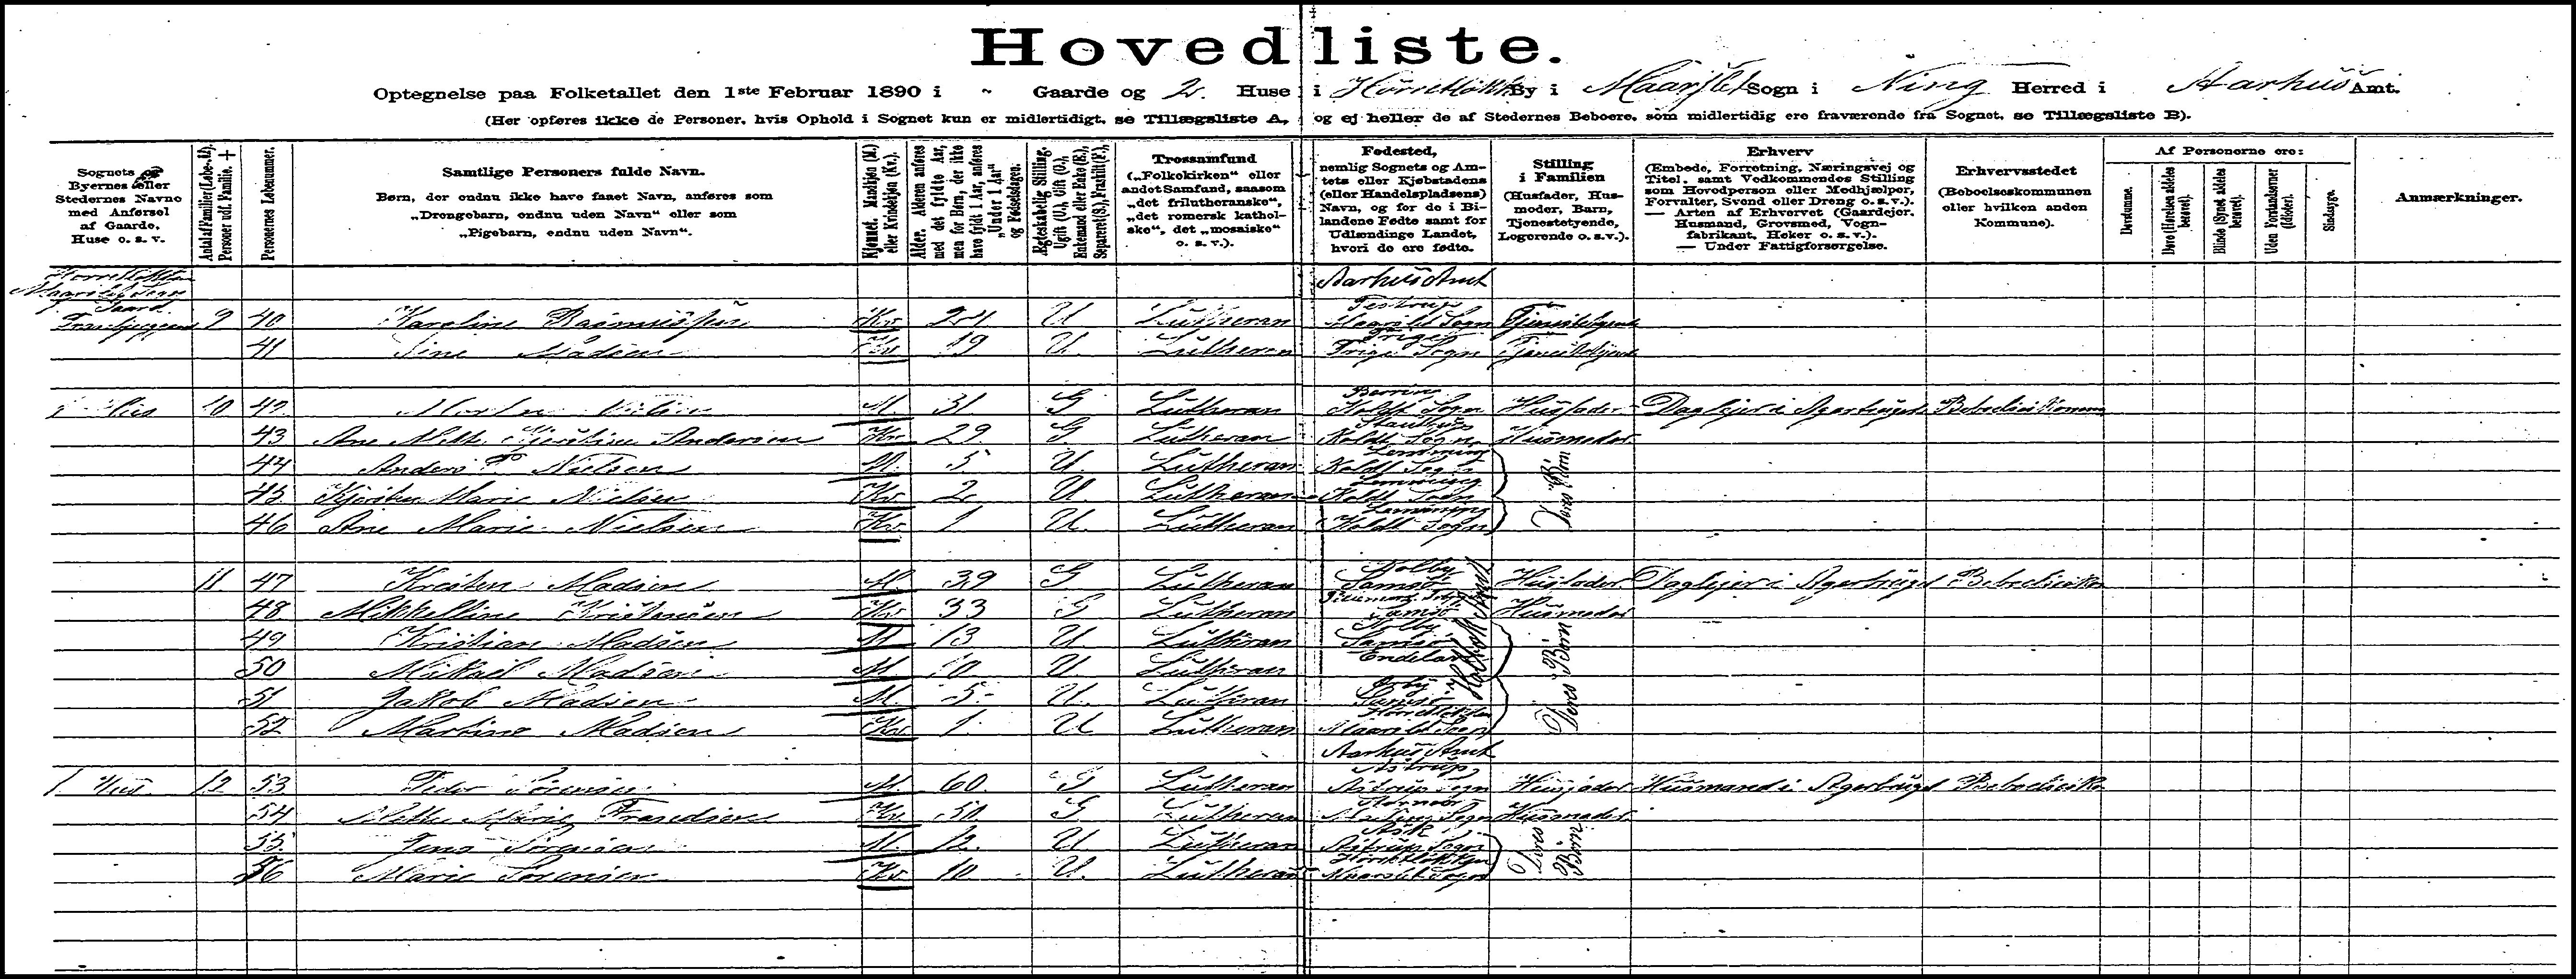 Hovedliste.
Optegnelse paa Folketallet den 1ste Februar 1890 i ~ Gaarde og 2 Huse i By i Maarslet Sogn i Ning Herred i Aarhus Amt.
(Her opføres ikke de Personer, hvis Ophold i Sognet kun er midlertidigt, se Tillægsliste A, og ej heller de af Stedernes Beboere, som midlertidig ere fraværende fra Sognet, se Tillægsliste B).
Sognets og Byernes eller Stedernes Navne med Anførsel af Gaarde, Huse o. s. v.
Antal af Familier (Løbe-.№). Personer udf. Familie. +
Personernes Løbenummer.
Samtlige Personers fulde Navn.
Børn, der endnu ikke have faaet Navn, anføres som „Drengebarn, endnu uden Navn“ eller som „Pigebarn, endnu uden Navn“.
Kjønnet. Mandkjøn (M.) eller Kvindekjøn (Kv.).
Alder. Alderen anføres med det fyldte Aar, men for Børn, der ikke have fyldt 1 Aar, anføres „Under 1 Aar“ og Fødselsdagen.
Ægteskabelig Stilling. Ugift (U.), Gift (G.), Enkemand eller Enke (E.), Separeret (S.), Fraskilt (F.).
Trossamfund
(„Folkekirken“ eller andet Samfund, saasom „det frilutheranske“, „det romersk katholske“, det „mosaiske“ o. s. v.).
Fødested,
nemlig Sognets og Amtets eller Kjøbstadens (eller Handelspladsens) Navn, og for de i Bilandene Fødte samt for Udlændinge Landet, hvori de ere fødte.
Stilling i Familien
(Husfader, Husmoder, Barn, Tjenestetyende, Logerende o. s. v.).
Erhverv
(Embede, Forretning, Næringsvej og Titel, samt Vedkommendes Stilling som Hovedperson eller Medhjælper, Forvalter, Svend eller Dreng o. s. v.). — Arten af Erhvervet (Gaardejer, Husmand, Grovsmed, Vognfabrikant, Høker o. s. v.). — Under Fattigforsørgelse.
Erhvervsstedet
(Beboelseskommunen eller hvilken anden Kommune).
Af Personerne ere:
Døvstumme.
Døve (Hørelsen aldeles berøvet).
Blinde (Synet aldeles berøvet).
Uden Forstandsevner (Idioter).
Sindssyge.
Anmærkninger.
Aarhus Amt
Gaard
9 40 Karoline Rasmussen Kv 24 U Lutheran Testrup Maarslet Sogn Tjenestetyende
41 Sine Madsen Kv 19 U Lutheran Trige Trige Sogn Tjenestetyende
1 Hus 10 42 M. 31 G Lutheran Koldt Sogn Husfader Daglejer i Agerbruget
43 Ane Mette Kjerstine Andersen Kv 29 G Lutheran Koldt Sogn Husmoder
44 Anders P Nielsen M. 5 U. Lutheran Koldt Sogn
45 Kjersten Marie Nielsen Kv 2 U. Lutheran Koldt Sogn
46 Ane Marie Nielsen Kv 1 U. Lutheran Koldt Sogn
Deres Børn
11 47 Kristen Madsen M 39 G Lutheran Kolby Samsø Husfader Daglejer i Agerbruget
48 Mikkelline Kristensen Kv 33 G Lutheran Samsø Husmoder
49 Kristian Madsen M 13 U Lutheran Kolby Samsø
50 Mikael Madsen M. 10 U. Lutheran Endelave
51 Jakob Madsen M. 5 U. Lutheran Samsø
52 Martine Madsen Kv 1 U Lutheran Maarslet Sogn
Holbæk Amt
Deres Børn
Aarhus Amt
1 Hus 12 53 Peder Sørensen M. 60 G Lutheran Astrup Astrup Sogn Husfader Husmand i Agerbruget
54 Mette Marie Frandsen Kv 50 G Lutheran Sogn Husmoder
55 Jens Sørensen M. 12 U Lutheran Astrup Sogn
56 Marie Sørensen Kv 10 U. Lutheran Maarslet Sogn
Deres Børn